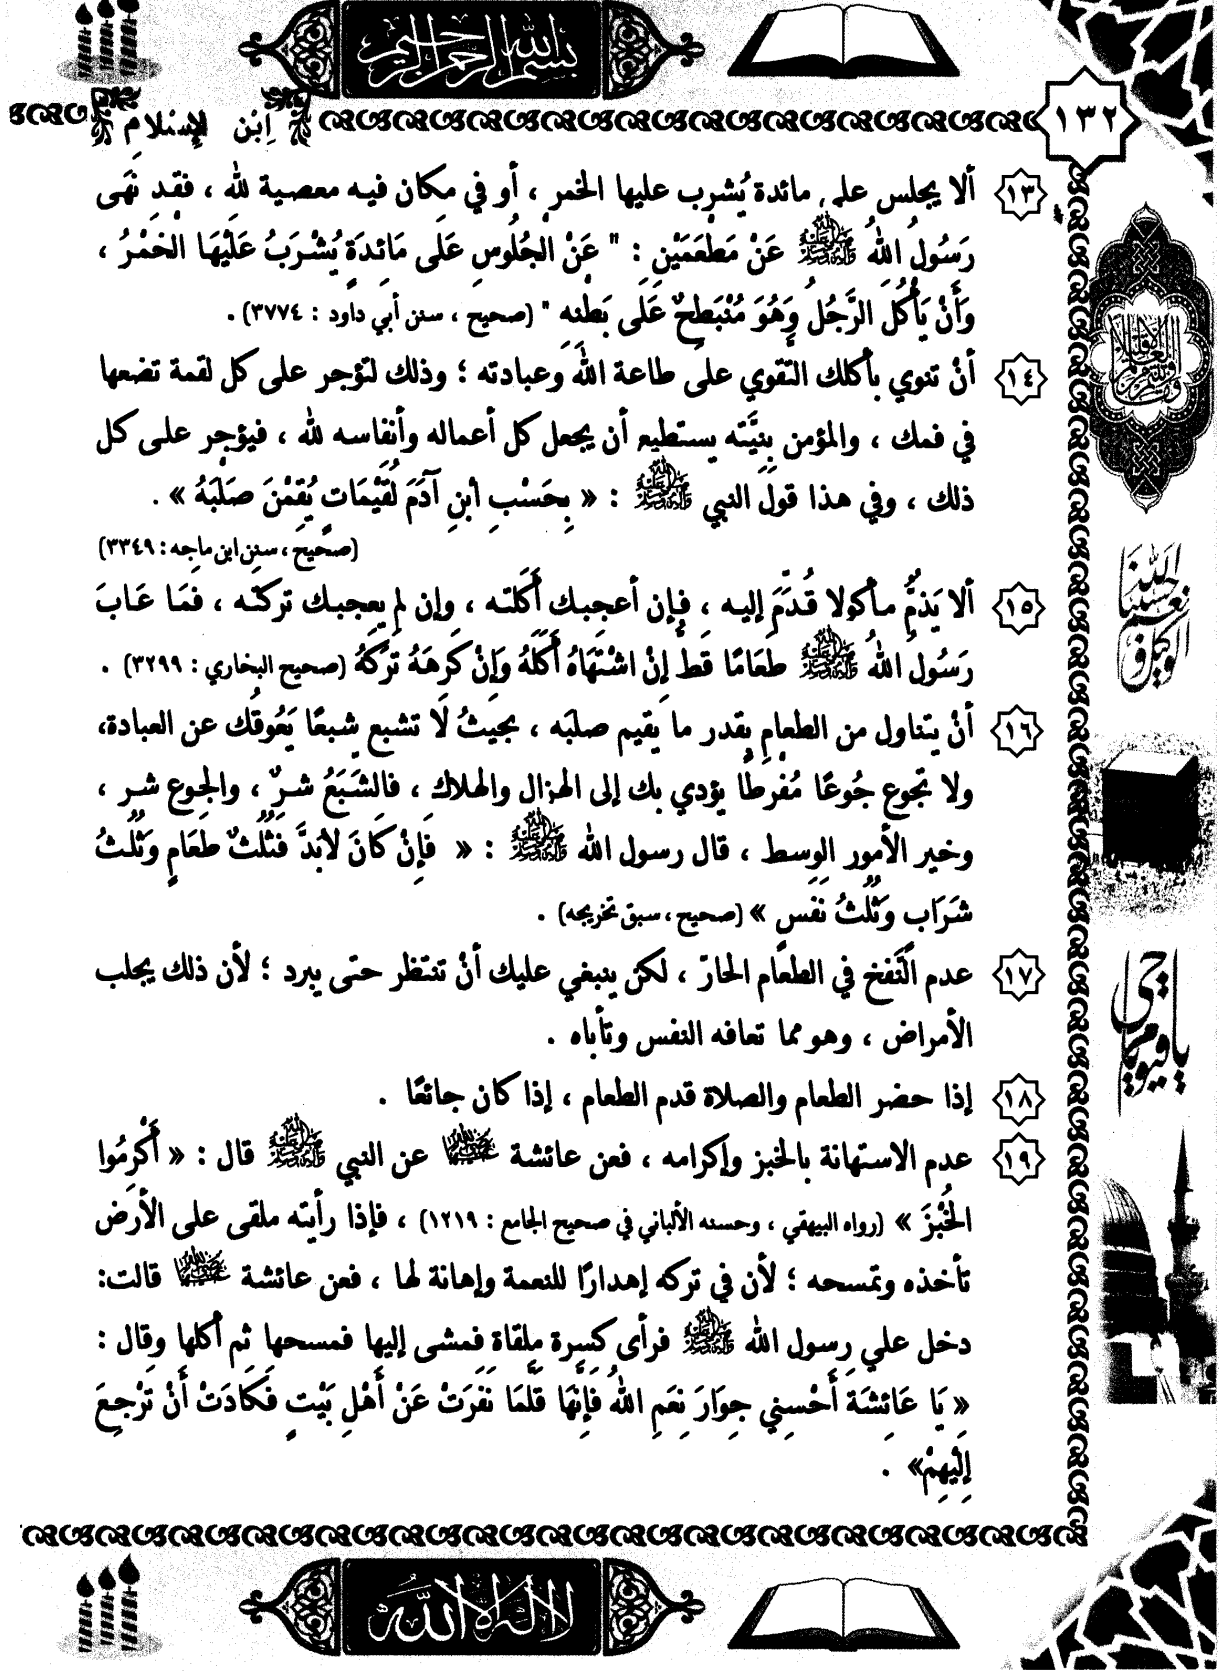 بسم الله الرحمن الرحيم
١٣٢
ابْن الإسْلام
١٣ ألا يجلس على مائدة يُشرب عليها الخمر ، أو في مكان فيه معصية لله ، فقد نَهَى
رَسُولُ اللهُ ﷺ عَنْ مَطْعَمَيْنِ : " عَنْ الْجُلُوسِ عَلَى مَائِدَةٍ يُشْرَبُ عَلَيْهَا الْخَمْرُ ،
وَأَنْ يَأْكُلَ الرَّجُلُ وَهُوَ مُنْبَطِحٌ عَلَى بَطْنِهِ " (صحيح ، سنن أبي داود : ٣٧٧٤) .
١٤ أنْ تنوي بأكلك التَّقوي على طاعة الله وعبادته ؛ وذلك لتؤجر على كل لقمة تضعها
في فمك ، والمؤمن بِنيَّته يستطيع أن يجعل كل أعماله وأنفاسه لله ، فيؤجر على كل
ذلك ، وفي هذا قولَ النبي ﷺ : « بِحَسْبِ ابنِ آدَمَ لُقَيْمَاتٍ يُقِمْنَ صَلَبَهُ » .
(صحيح ، سنن ابن ماجه : ٣٣٤٩)
١٥ ألا يَذمُّ مأكولا قُدِّمَ إليه ، فإن أعجبك أَكَلتَه ، وإن لم يعجبك تركتَه ، فمَا عَابَ
رَسُولُ اللهُ ﷺ طَعَامًا قَطُّ إنْ اشْتَهَاهُ أَكَلَهُ وَإِنْ كَرِهَهُ تَرَكَهُ (صحيح البخاري : ٣٢٩٩) .
١٦ أنْ يتناول من الطعامِ بقدر ما يقيم صلبَه ، بحيثُ لَا تشبع شبعًا يَعُوقُك عن العبادة،
ولا تجوع جُوعًا مُفرطًا يؤدي بك إلى الهزال والهلاك ، فالشَبَعُ شرٌ ، والجوع شر ،
وخير الأمور الوسط ، قال رسول الله ﷺ : « فَإِنْ كَانَ لَابُدَّ فثُلُثٌ طَعَامٍ وَثُلُثُ
شَرَابٍ وَثُلُثُ نَفَسٍ » (صحيح ، سبق تخريجه) .
١٧ عدم النَّفخ في الطعَام الحارّ ، لكن ينبغي عليك أنْ تنتظر حتى يبرد ؛ لأن ذلك يجلب
الأمراض ، وهو مما تعافه النفس وتأباه .
١٨ إذا حضر الطعام والصلاة قدم الطعام ، إذا كان جائعًا .
١٩ عدم الاستهانة بالخبز وإكرامه ، فعن عائشة عن النبي ﷺ قال : « أَكْرِمُوا
الْخُبْزَ » (رواه البيهقي ، وحسنه الألباني في صحيح الجامع : ١٢١٩) ، فإذا رأيته ملقى على الأرض
تأخذه وتمسحه ؛ لأن في تركه إهدارًا للنعمة وإهانة لها ، فعن عائشة قالت:
دخل علي رسول الله ﷺ فرأى كسرة ملقاة فمشى إليها فمسحها ثم أكلها وقال :
« يَا عَائِشَةَ أَحْسِنِي جِوَارَ نِعَمِ اللهُ فَإِنَّهَا قَلَّمَا نَفَرَتْ عَنْ أَهْلِ بَيْتٍ فَكَادَتْ أَنْ تَرْجِعَ
إِلَيْهِمْ» .
حسبنا الله ونعم الوكيل
يا حي يا قيوم
لا اله الا الله